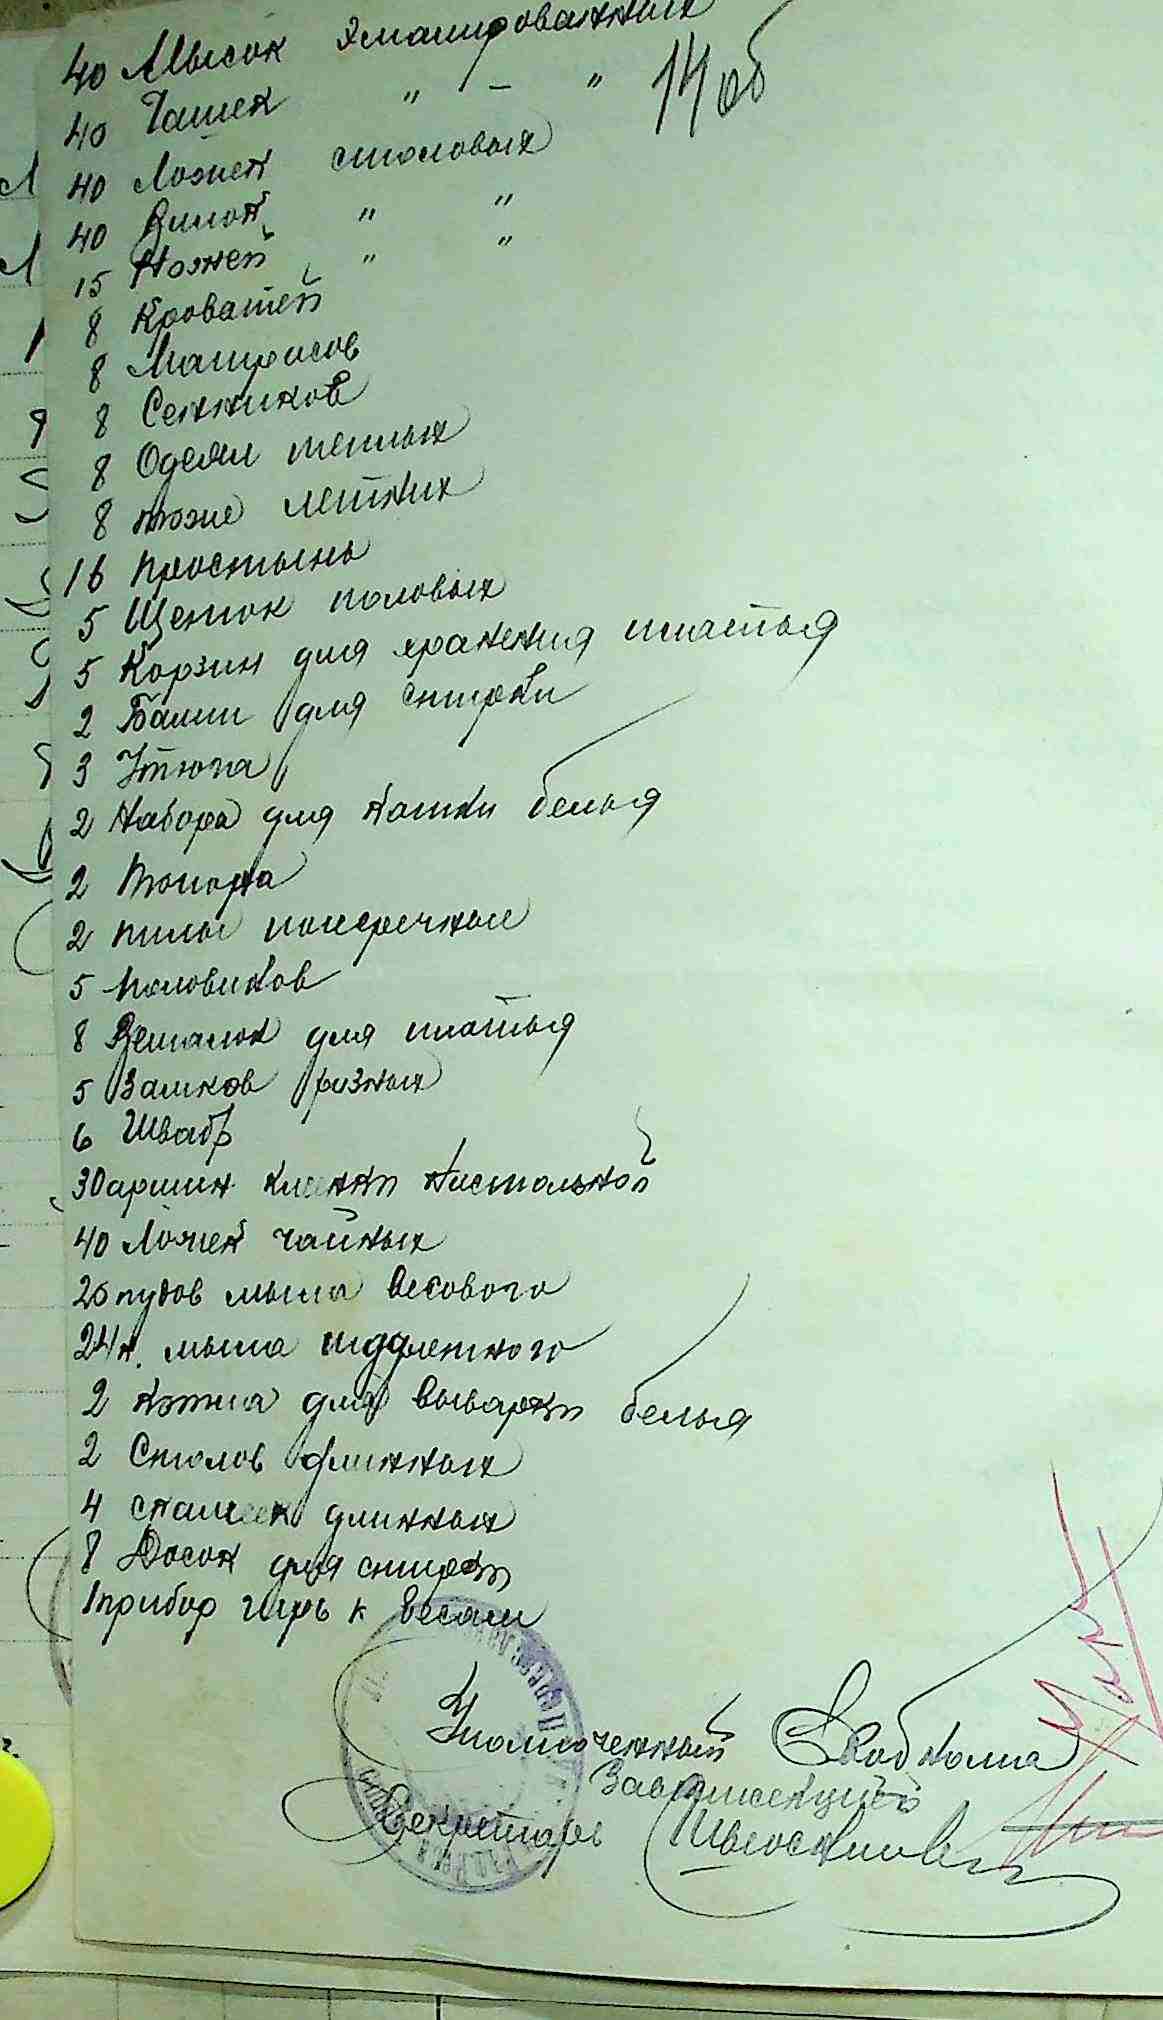 40 Мысок эмалированных
40 Чашек " – " 14 об
40 Ложек столовых
40 Вилок " "
15 Ножей " "
8 Кроватей
8 Матрасов
8 Сенников
8 Одеял теплых
8 тоже летних
16 простынь
5 Щеток половых
5 Корзин для хранения платья
2 Бани для стирки
3 Утюга
2 Набора для катки белья
2 Топора
2 пилы поперечные
5 половиков
8 Вешалок для платья
5 Замков разных
6 Швабр
30 аршин клеенки настольной
40 Ложек чайных
20 пудов мыла весового
24 к. мыла туалетного
2 котла для выварки белья
2 Столов длинных
4 скамеек длинных
8 Досок для стирки
1 прибор гирь к весам
Уполномоченный
Зав. Жилсекцией
Секретарь